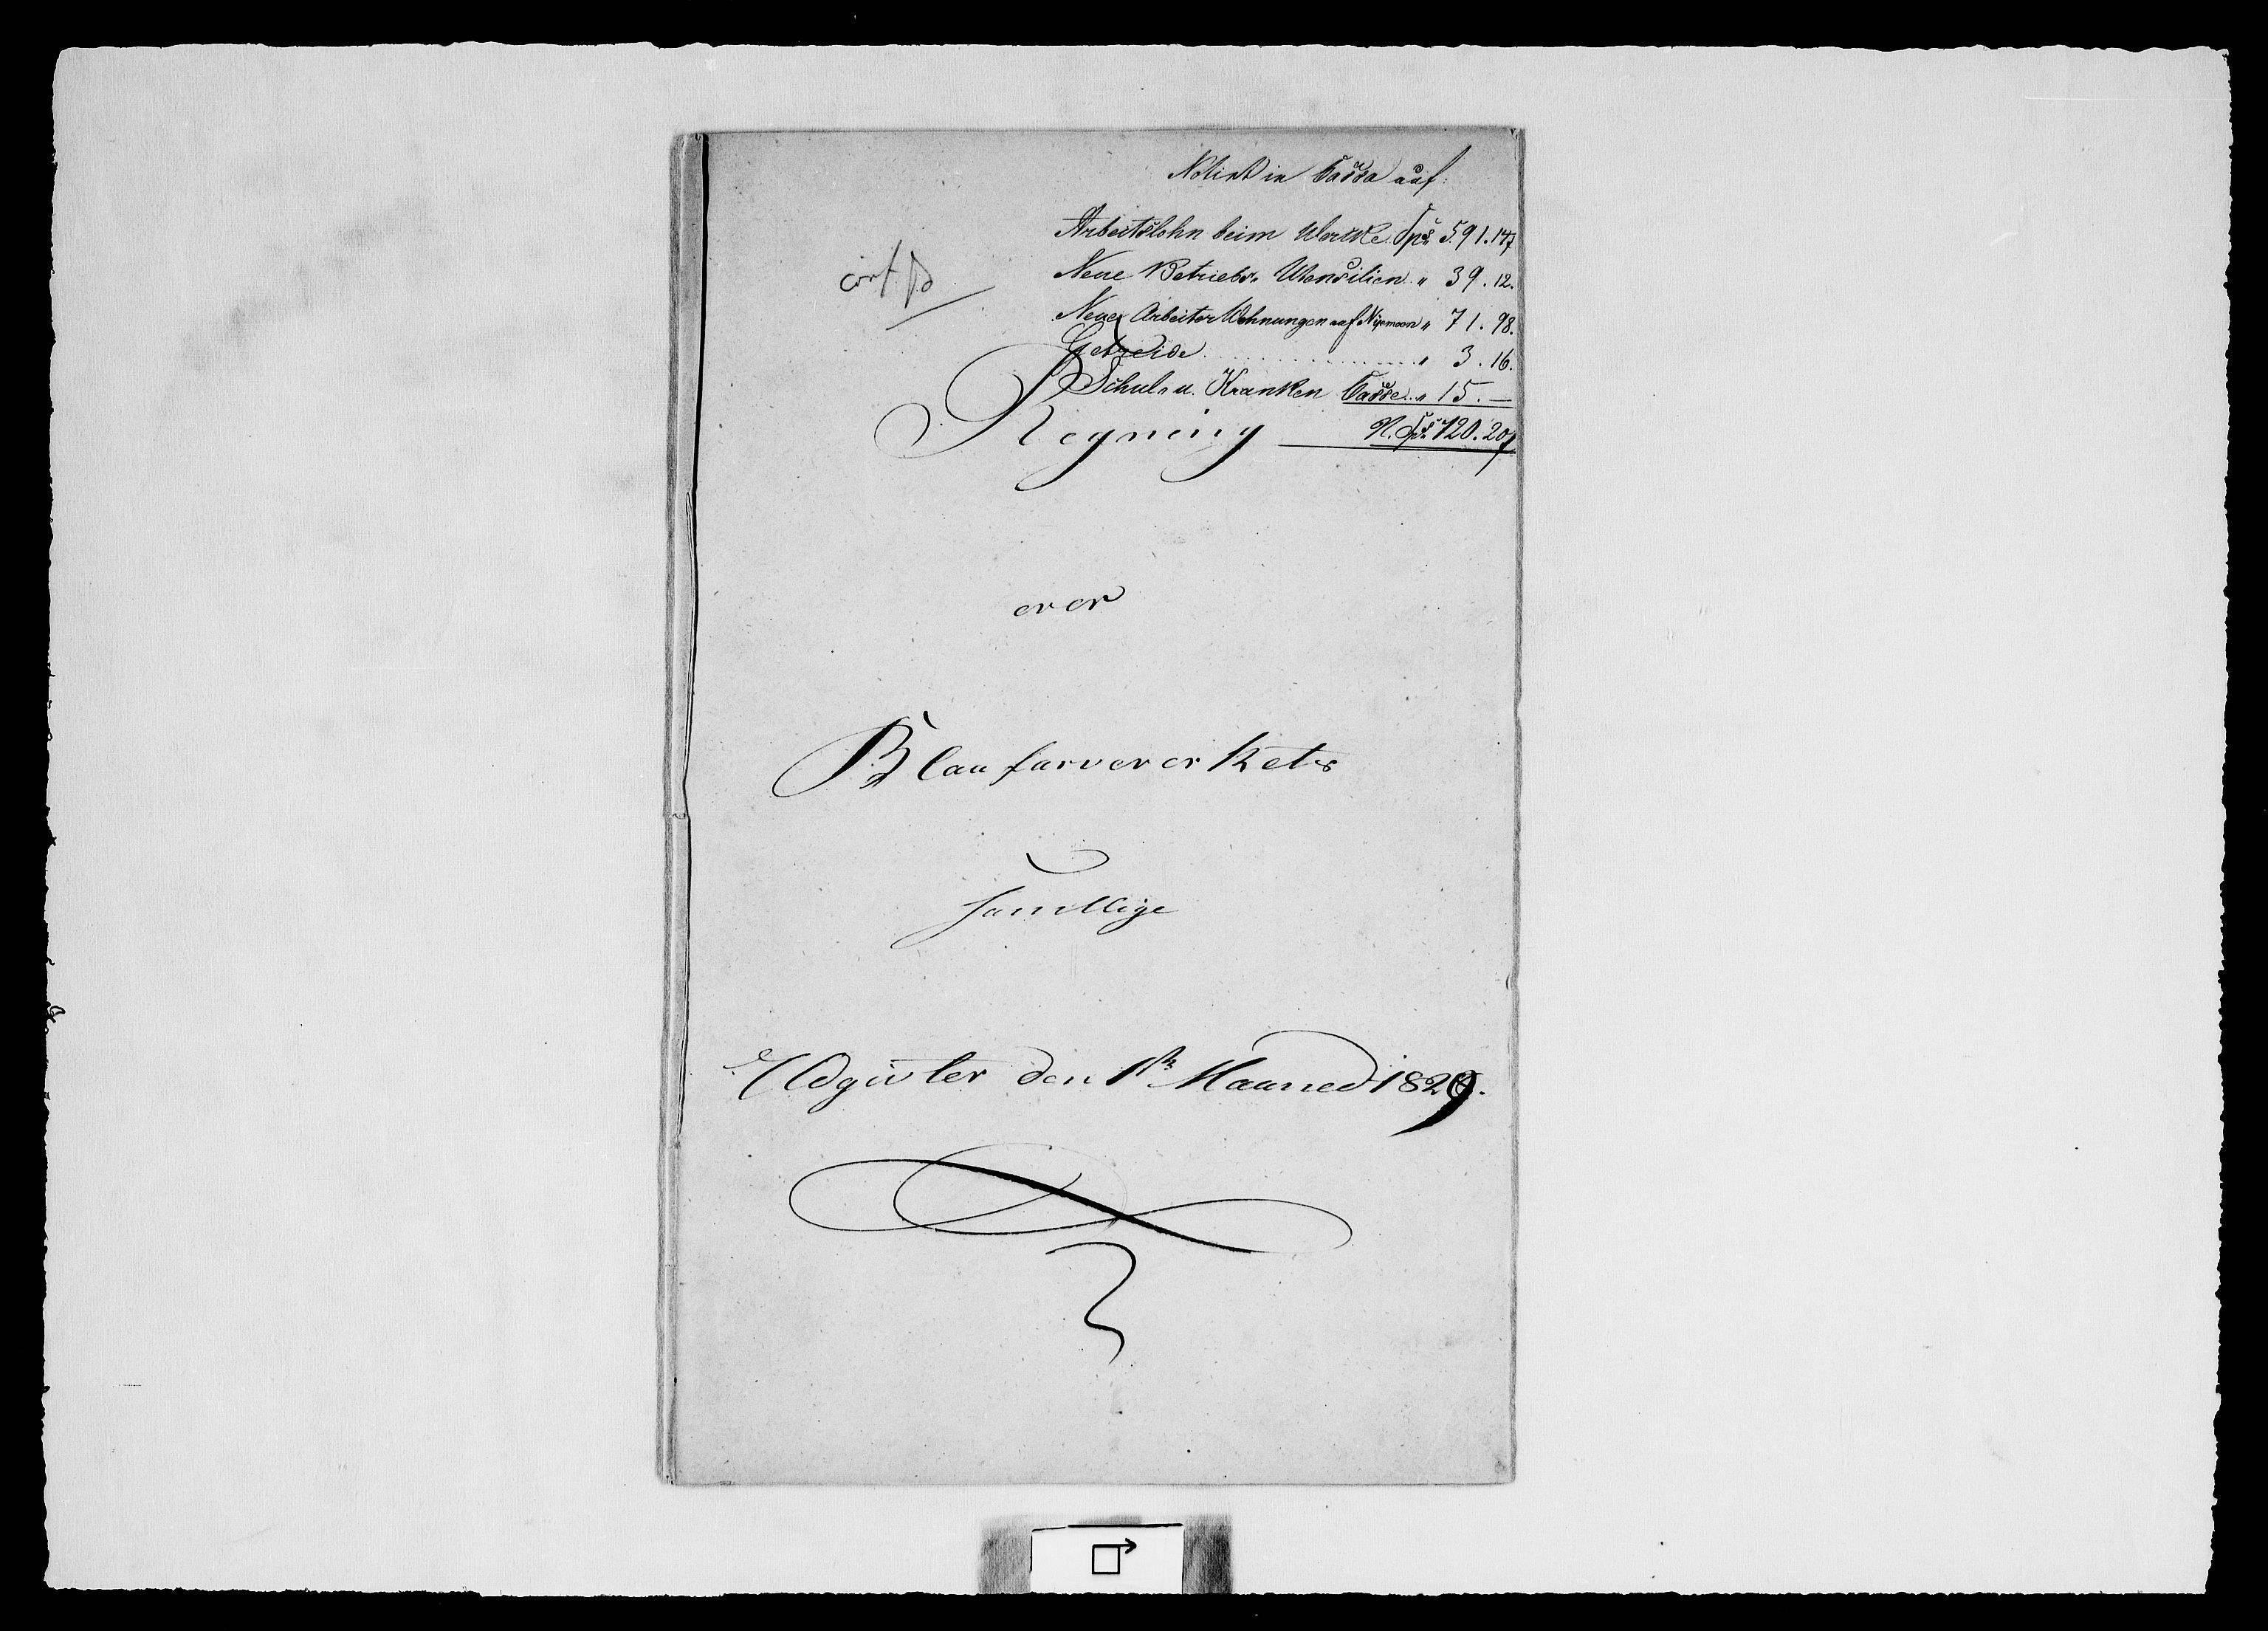 Notirt in Cassa auf:
Arbeitslohn beim Werke Spd. 591.147
Neue Betriebs- Utensilien " 39.12.
Neue Arbeiter Wohnungen auf Nipmoen " 71.98.
Getreide " 3.16.
Schul- u. Kranken Casse " 15.—
N. Spd. 720.207
Regning
over
Blaufarververkets
samtlige
Udgivter den 1ste Maaned 1829.